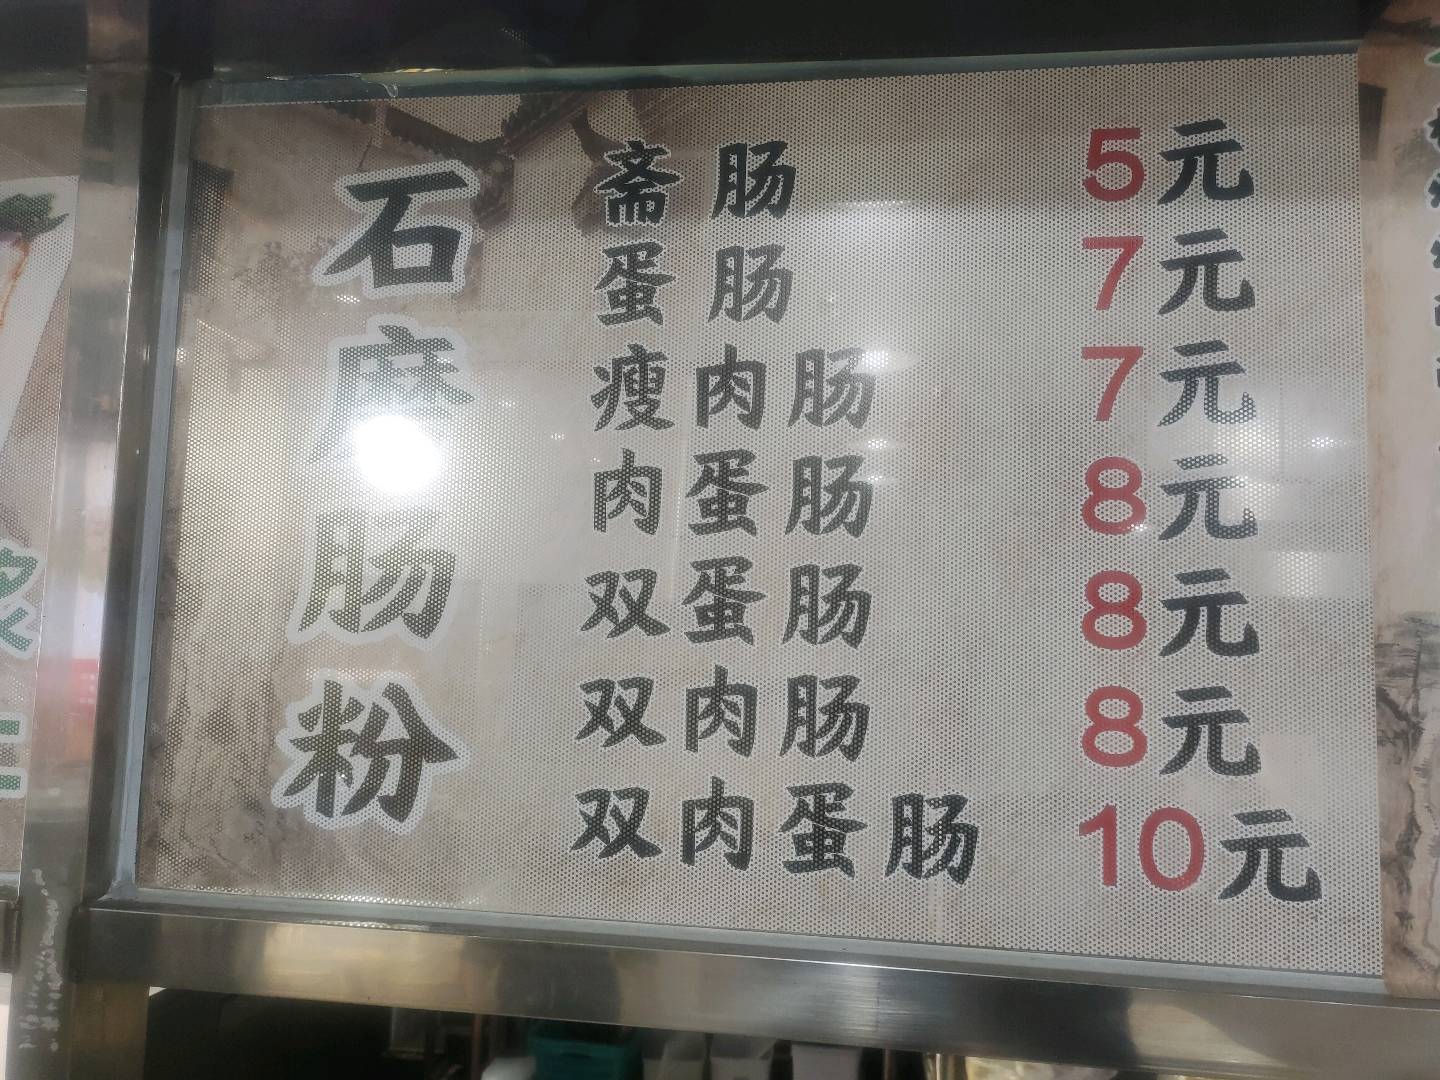 石麻肠粉
斋肠 5元
蛋肠 7元
瘦肉肠 7元
肉蛋肠 8元
双蛋肠 8元
双肉肠 8元
双肉蛋肠 10元